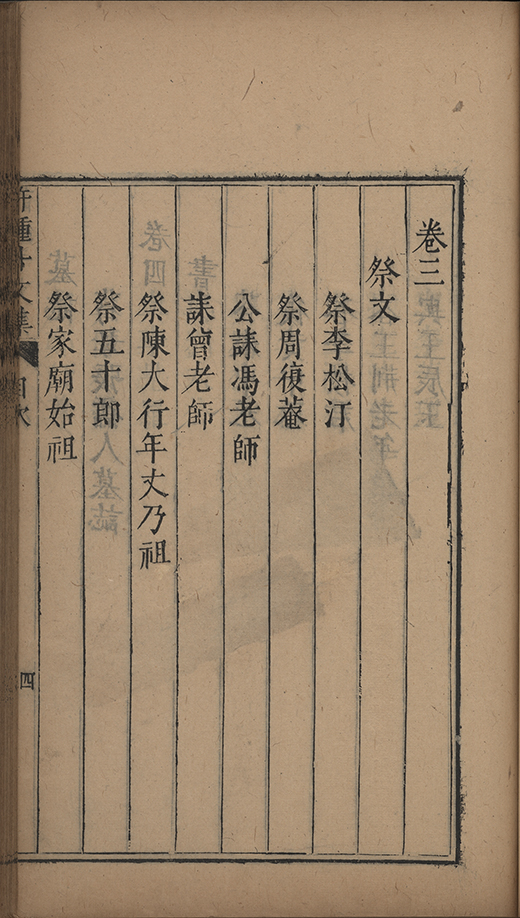 卷三
祭文
祭李松汀
祭周復菴
公誄馮老師
誄曾老師
祭陳大行年丈乃祖
祭五十郎
祭家廟始祖
文集
目次
四